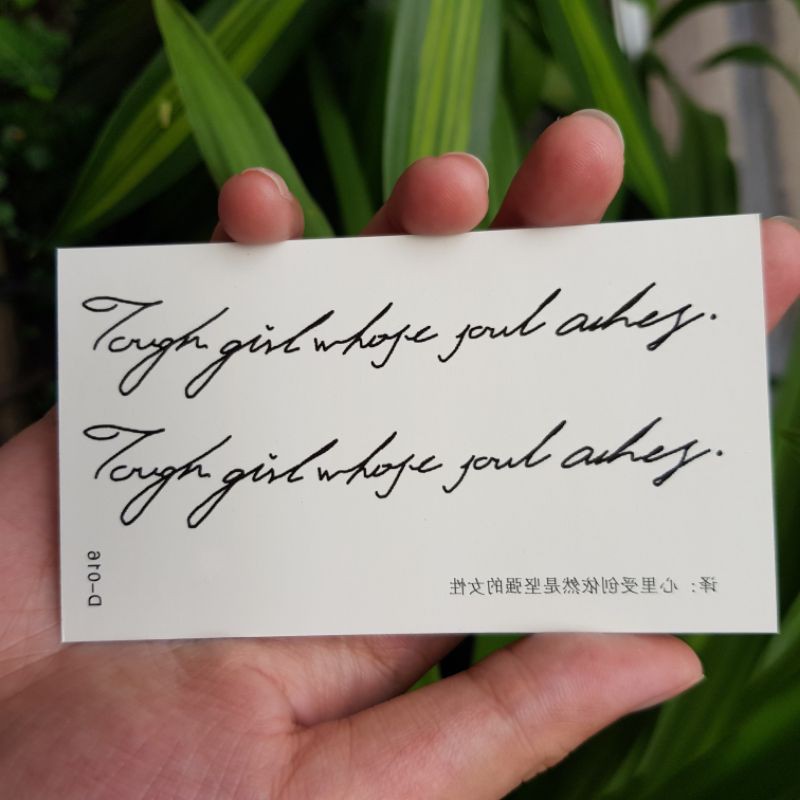 Tough girl whose soul aches.
Tough girl whose soul aches.
译：心里受创依然是坚强的女性
D-016